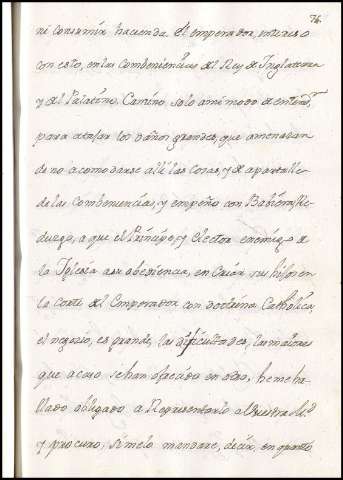 76.
ni consumir hacienda el emperador,
con esto, en las Combeniencias del Rey de Inglaterra
y del Palatino. Camino, solo a mi modo de entender
para atajar los daños grandes, que amenazan
de no acomodarse alli las cosas, y de apartalle
de las Combeniencias, y empeño con Babiera, Re-
duzgo, a que el Prinçipe, y Elector enemigo de
la Iglesia a su obediencia, en Criar, su hijo en
la corte del Emperador con doctrina Catholica,
el negocio, es grande, las dificultades, las maiores
que acaso se han ofrecido en otro, heme ha-
llado obligado a Representarlo a Vuestra Md.
y procuro, si me lo mandare, decir, en quanto